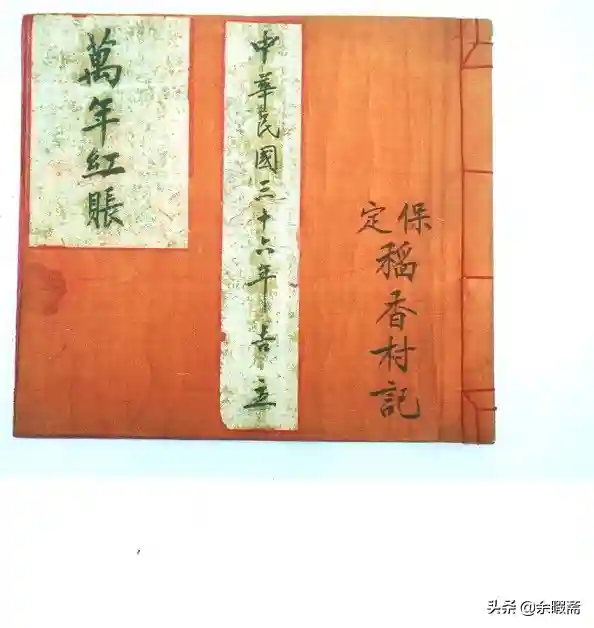 保定
稻香村記
中華民國三十六年吉立
萬年紅賬
头条 @余暇斋